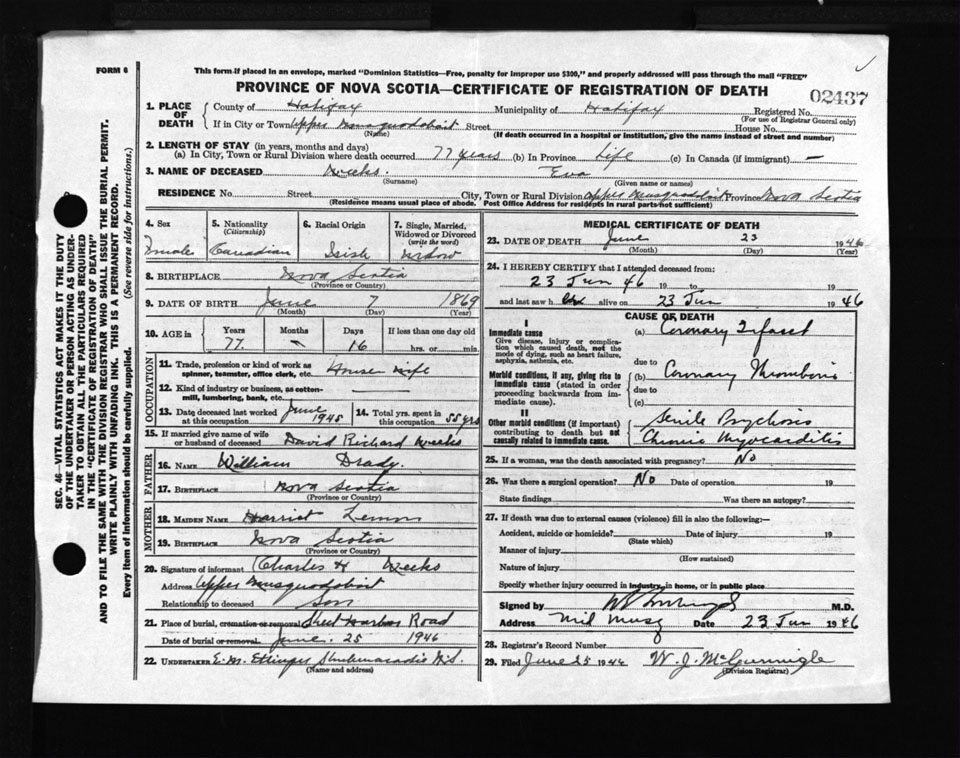 FORM 6
This form if placed in an envelope, marked "Dominion Statistics—Free, penalty for improper use $300," and properly addressed will pass through the mail "FREE"
PROVINCE OF NOVA SCOTIA—CERTIFICATE OF REGISTRATION OF DEATH
02437
1. PLACE OF DEATH County of Halifax Municipality of Halifax Registered No.
(For use of Registrar General only)
If in City or Town Upper Musquodoboit Street House No.
(Name) (If death occurred in a hospital or institution, give the name instead of street and number)
2. LENGTH OF STAY (in years, months and days)
(a) In City, Town or Rural Division where death occurred 77 years (b) In Province Life (c) In Canada (if immigrant) —
3. NAME OF DECEASED Weeks. Eva
(Surname) (Given name or names)
RESIDENCE No. Street City, Town or Rural Division Upper Musquodoboit Province Nova Scotia
(Residence means usual place of abode. Post Office Address for residents in rural parts not sufficient)
SEC. 46—VITAL STATISTICS ACT MAKES IT THE DUTY
OF THE UNDERTAKER OR PERSON ACTING AS UNDER-
TAKER TO OBTAIN ALL THE PARTICULARS REQUIRED
IN THE "CERTIFICATE OF REGISTRATION OF DEATH"
AND TO FILE THE SAME WITH THE DIVISION REGISTRAR WHO SHALL ISSUE THE BURIAL PERMIT.
WRITE PLAINLY WITH UNFADING INK. THIS IS A PERMANENT RECORD.
Every item of Information should be carefully supplied. (See reverse side for instructions.)
4. Sex 5. Nationality (Citizenship) 6. Racial Origin 7. Single, Married, Widowed or Divorced (write the word)
Canadian Irish Widow
8. BIRTHPLACE Nova Scotia
(Province or Country)
9. DATE OF BIRTH June 7 1869
(Month) (Day) (Year)
10. AGE in Years Months Days If less than one day old
77. — 16 hrs. or min.
OCCUPATION
11. Trade, profession or kind of work as spinner, teamster, office clerk, etc. House wife
12. Kind of industry or business, as cotton-mill, lumbering, bank, etc.
13. Date deceased last worked at this occupation June 1945 14. Total yrs. spent in this occupation 55 yrs
15. If married give name of wife or husband of deceased David Richard Weeks
FATHER
16. NAME William Drady.
17. BIRTHPLACE Nova Scotia
(Province or Country)
MOTHER
18. MAIDEN NAME Harriet Lemon
19. BIRTHPLACE Nova Scotia
(Province or Country)
20. Signature of informant Charles H Weeks
Address Upper Musquodoboit
Relationship to deceased Son
21. Place of burial, cremation or removal Sheet Harbor Road
Date of burial or removal June. 25 1946
22. UNDERTAKER E. M. Ettinger Shubenacadie N.S.
(Name and address)
MEDICAL CERTIFICATE OF DEATH
23. DATE OF DEATH June 23 1946
(Month) (Day) (Year)
24. I HEREBY CERTIFY that I attended deceased from:
23 Jun 46 19 to 19
and last saw h alive on 23 Jun 1946
CAUSE OF DEATH
I
Immediate cause (a) Coronary Infarct
Give disease, injury or complication which caused death, not the mode of dying, such as heart failure, asphyxia, asthenia, etc.
due to
Morbid conditions, if any, giving rise to immediate cause (stated in order proceeding backwards from immediate cause).
(b) Coronary Thrombosis
due to
(c)
II
Other morbid conditions (if important) contributing to death but not causally related to immediate cause.
Senile Psychosis
Chronic Myocarditis
25. If a woman, was the death associated with pregnancy? No
26. Was there a surgical operation? No Date of operation 19
State findings Was there an autopsy?
27. If death was due to external causes (violence) fill in also the following:—
Accident, suicide or homicide? Date of injury 19
(State which)
Manner of injury
(How sustained)
Nature of injury
Specify whether injury occurred in industry, in home, or in public place
Signed by M.D.
Address Mid Musq Date 23 Jun 1946
28. Registrar's Record Number
29. Filed June 25 1946 W. J. McGunnigle
(Division Registrar)